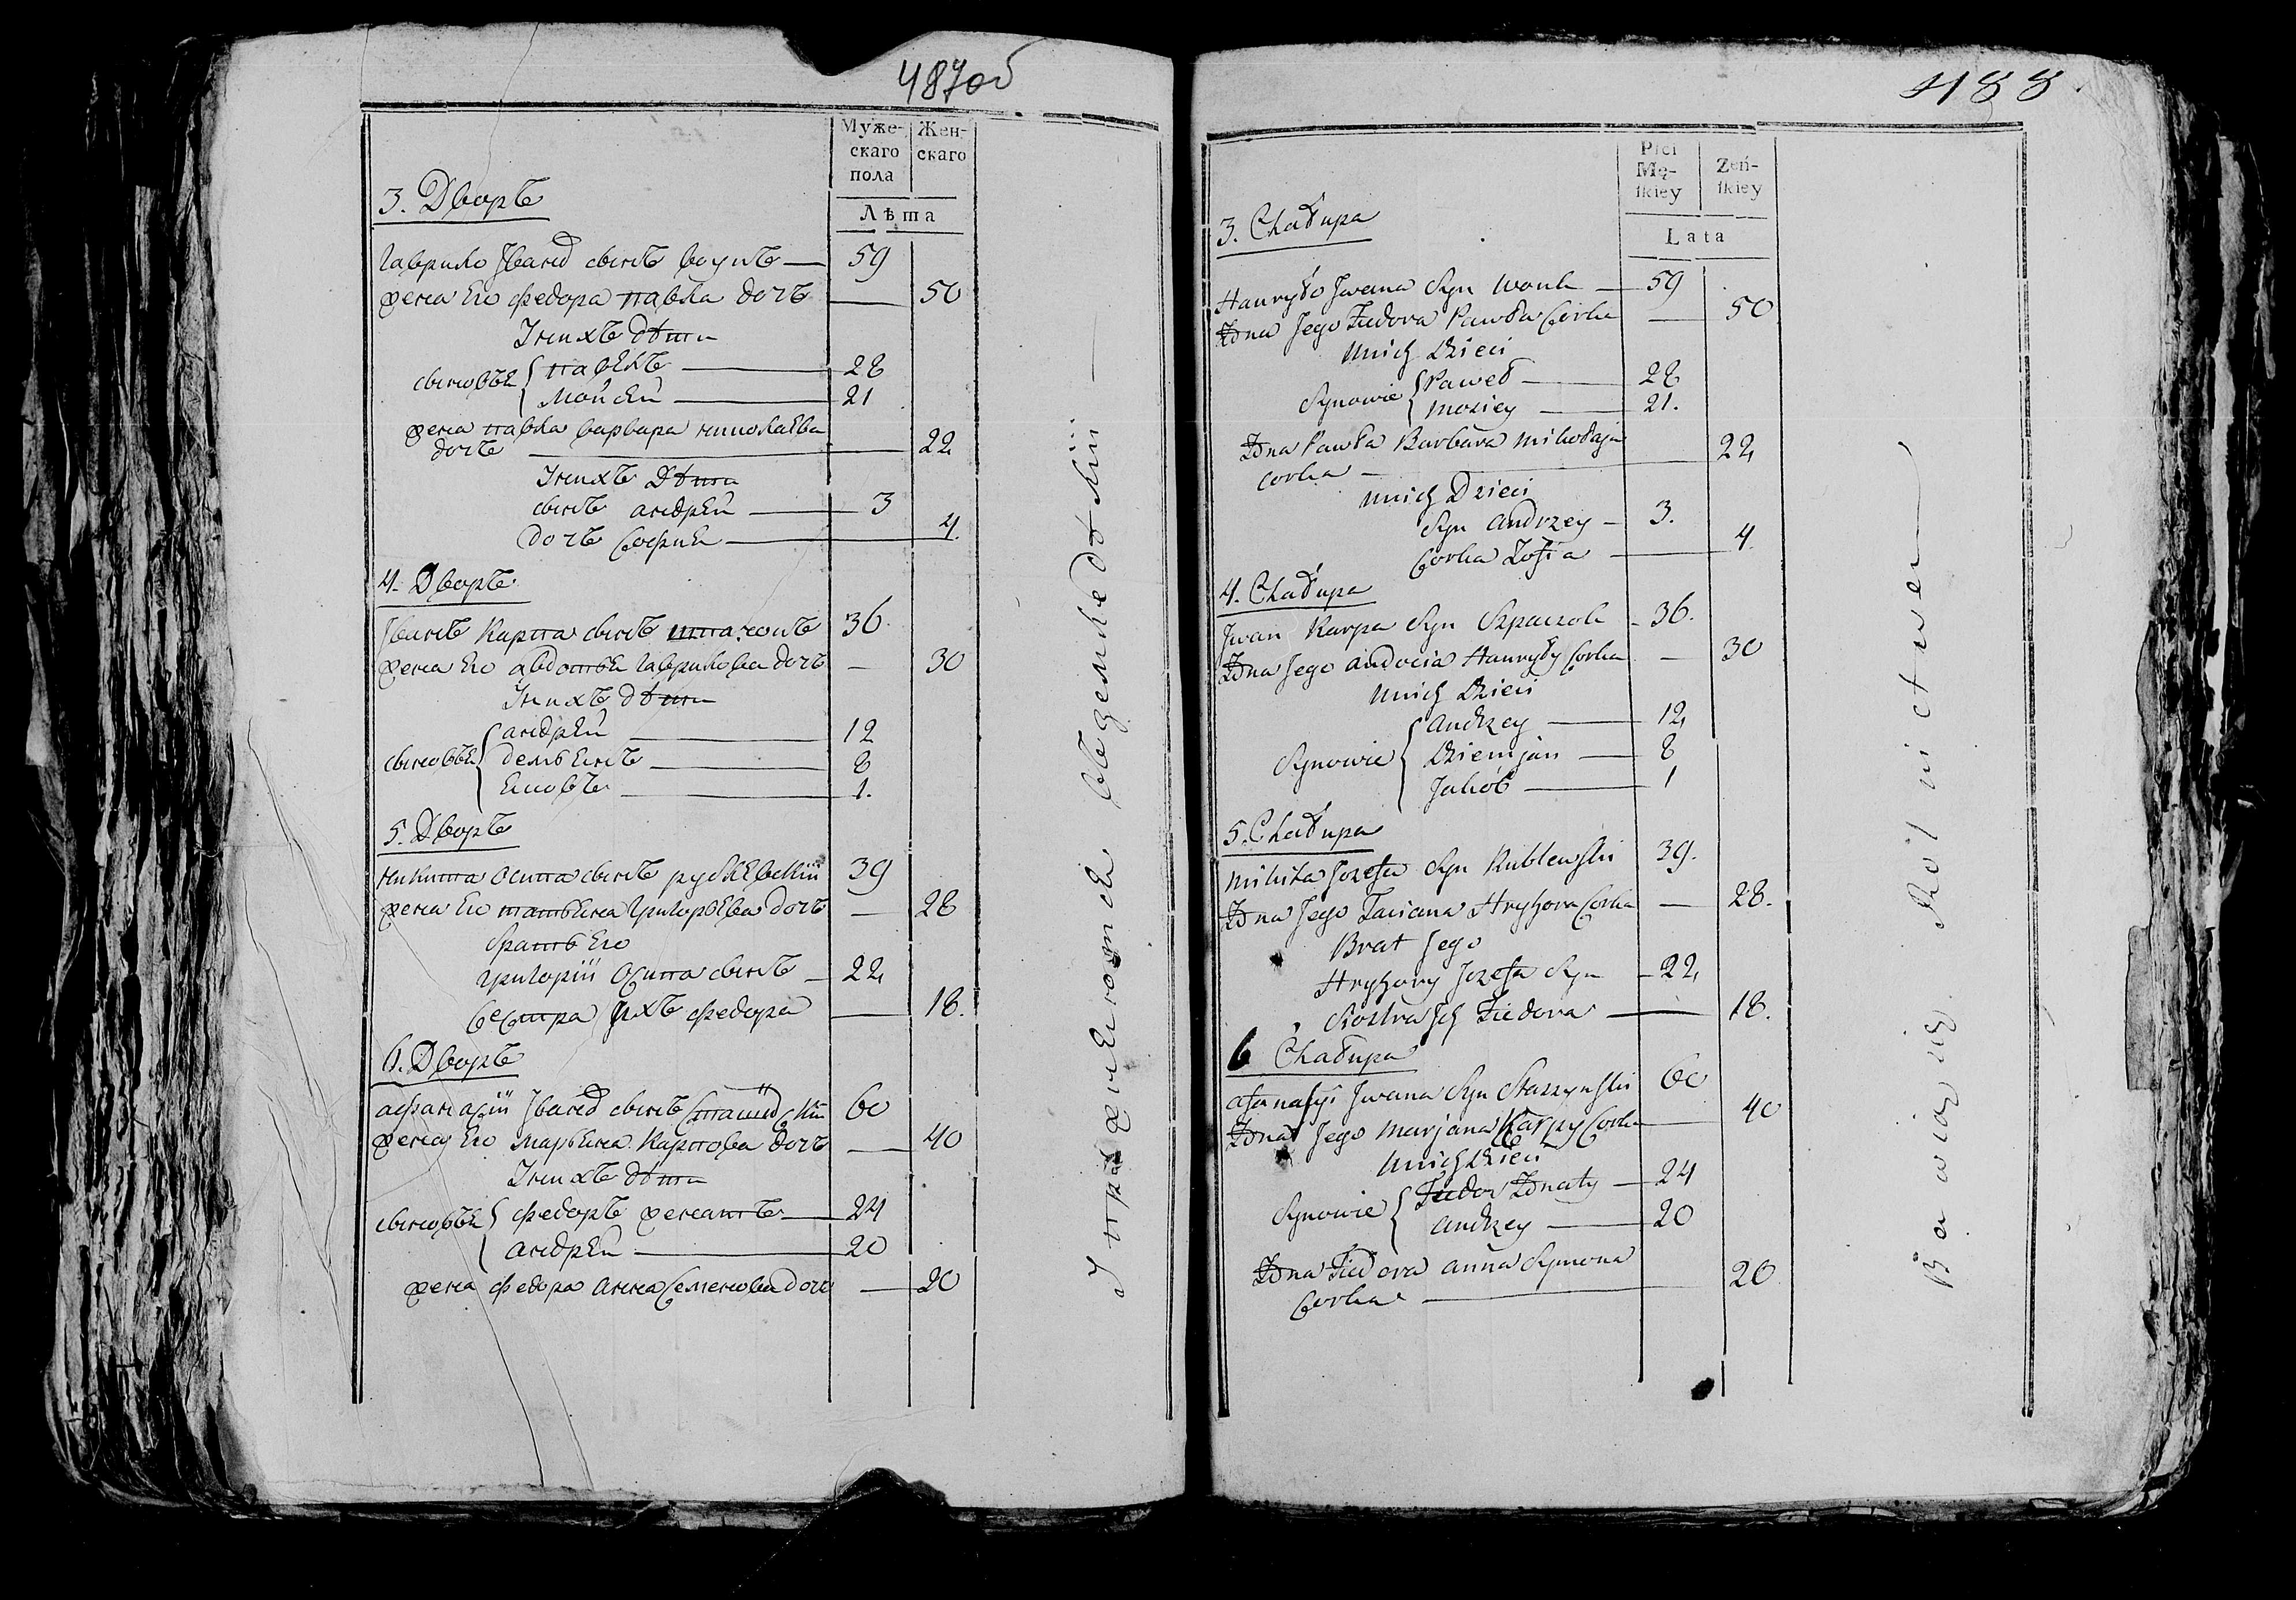 487об
Муже-
скаго
пола
Жен-
скаго
Лѣта
3. Дворъ
Гаврило Ивана сынъ воукъ — 59
жена Его федора павла дочъ — 50
У них дѣти
сыновѣя { павелъ — 28
Мойсей — 21
жена павла варвара николаева
дочъ — 22
У них дѣти
сынъ андрей — 3
дочъ софия — 4.
4. Дворъ
Иванъ Карпа сынъ шпачокъ 36.
жена Его авдотья гаврилова дочъ — 30
У них дѣти
сыновѣя { андрей — 12
демьянъ — 8
Яковъ — 1.
5. Дворъ
никита осипа сынъ рублевский 39
жена Его татьяна григорьева дочъ — 28
братъ Его
григорий Осипа сынъ — 22
сестра ихъ федора — 18.
6. Дворъ
афанасий Ивана сынъ 60
жена Его марьяна Карпова дочъ — 40
У них дѣти
сыновѣя { федоръ женатъ — 24
андрей — 20
жена федора анна семенова дочъ — 20
Упражняются въ земледѣлии —
488.
Płci
Mę-
ſkiey
Żeń-
ſkiey
Lata
3. Chałupa
Hauryło Jwana Syn Wouk — 59
Żona Jego Fiedora Pawła Corka — 50
Unich Dzieci
Synowie { Paweł — 28
Mosiey — 21.
Żona Pawła Barbara Mikołaja
Corka — 22
Unich Dzieci
Syn Andrzey — 3.
Corka Zofia — 4.
4. Chałupa
Jwan Karpa Syn Szpaczok — 36.
Żona Jego Audocia Hauryły Corka — 30
Unich Dzieci
Synowie { Andrzey — 12
Dziemjan — 8
Jakób — 1
5. Chałupa
Mikita Jozefa Syn Rublewski 39.
Żona Jego Taciana Hryhora Corka — 28.
Brat Jego
Hryhory Jozefa Syn — 22
Siostra Jch Fiedora — 18.
6 Chałupa
Afanasyi Jwana Syn Staszynski 60
Żona Jego Marjana Karpy Corka — 40
Unich Dzieci
Synowie { Fiedor Żonaty — 24
Andrzey — 20
Żona Fiedora Anna Symona
Corka — 20
Bawią się Rolnictwem —